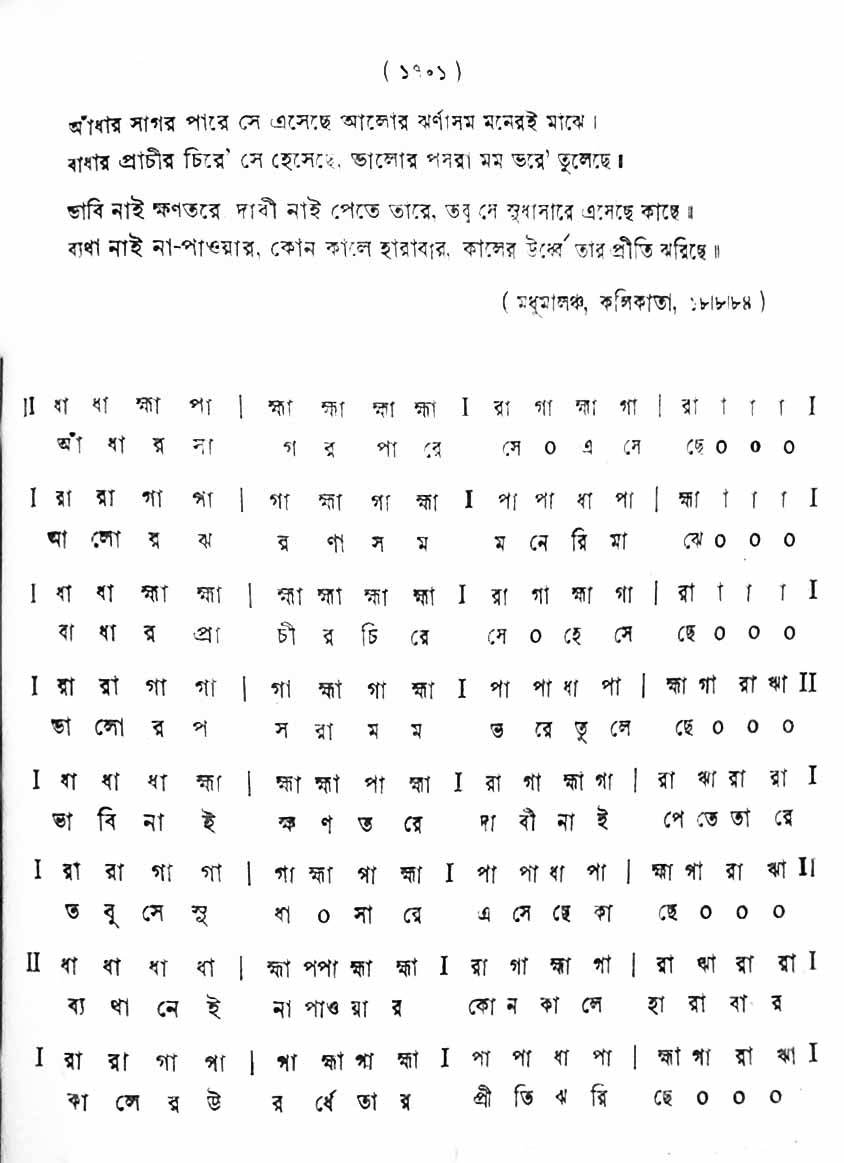 ( ১৭০১ )
আঁধার সাগর পারে সে এসেছে আলোর ঝর্ণাসম মনেরই মাঝে।
বাধার প্রাচীর চিরে' সে হেসেছে, ভালোর পসরা মম ভরে' তুলেছে৷
ভাবি নাই ক্ষণতরে দাবী নাই পেতে তারে, তবু সে সুধাসারে এসেছে কাছে॥
ব্যথা নাই না-পাওয়ার, কোন কালে হারাবার, কালের উর্ধ্বে তার প্রীতি ঝরিছে॥
( মধুমালঞ্চ, কলিকাতা, ১৮।৮।৮৪ )
II ধা ধা হ্মা পা | হ্মা হ্মা হ্মা হ্মা I রা গা হ্মা গা | রা া া া I
আঁ ধা র সা গ র পা রে সে ০ এ সে ছে ০ ০ ০
I রা রা গা গা | গা হ্মা গা হ্মা I পা পা ধা পা | হ্মা া া া I
আ লো র ঝ র ণা স ম ম নে রি মা ঝে ০ ০ ০
I ধা ধা হ্মা হ্মা | হ্মা হ্মা হ্মা হ্মা I রা গা হ্মা গা | রা া া া I
বা ধা র প্রা চী র চি রে সে ০ হে সে ছে ০ ০ ০
I রা রা গা গা | গা হ্মা গা হ্মা I পা পা ধা পা | হ্মা গা রা ঋা II
ভা লো র প স রা ম ম ভ রে তু লে ছে ০ ০ ০
I ধা ধা ধা হ্মা | হ্মা হ্মা পা হ্মা I রা গা হ্মা গা | রা ঋা রা রা I
ভা বি না ই ক্ষ ণ ত রে দা বী না ই পে তে তা রে
I রা রা গা গা | গা হ্মা গা হ্মা I পা পা ধা পা | হ্মা গা রা ঋা II
ত বু সে সু ধা ০ সা রে এ সে ছে কা ছে ০ ০ ০
II ধা ধা ধা ধা | হ্মা পপা হ্মা হ্মা I রা গা হ্মা গা | রা ঋা রা রা I
ব্য থা নে ই না পাও য়া র কো ন কা লে হা রা বা র
I রা রা গা গা | গা হ্মা গা হ্মা I পা পা ধা পা | হ্মা গা রা ঋা I
কা লে র উ র র্ধে তা র প্রী তি ঝ রি ছে ০ ০ ০